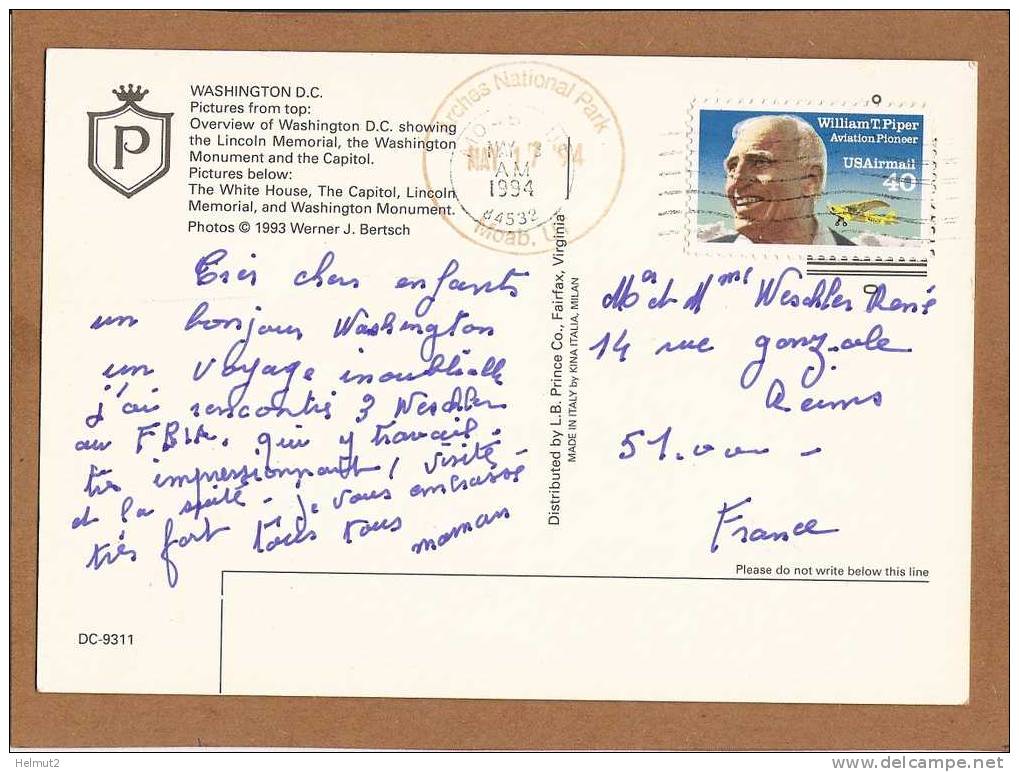 WASHINGTON D.C.
Pictures from top:
Overview of Washington D.C. showing
the Lincoln Memorial, the Washington
Monument and the Capitol.
Pictures below:
The White House, The Capitol, Lincoln
Memorial, and Washington Monument.
Photos © 1993 Werner J. Bertsch
P
Arches National Park
Moab, U
MAY
AM
1994
84532
William T. Piper
Aviation Pioneer
USAirmail
40
Très chers enfants
un bonjour Washington
un voyage inoubliable
j'ai rencontré 3 Weschler
au FBIA, qui y travail.
très impressionnant, visité
et la spité. Je vous embrasse
très fort tous tous
maman
Distributed by L.B. Prince Co., Fairfax, Virginia
MADE IN ITALY by KINA ITALIA, MILAN
Mr et Mme Weschler René
14 rue gonzale
Reims
51.000 -
France
Please do not write below this line
DC-9311
Helmut2
delcampe.net